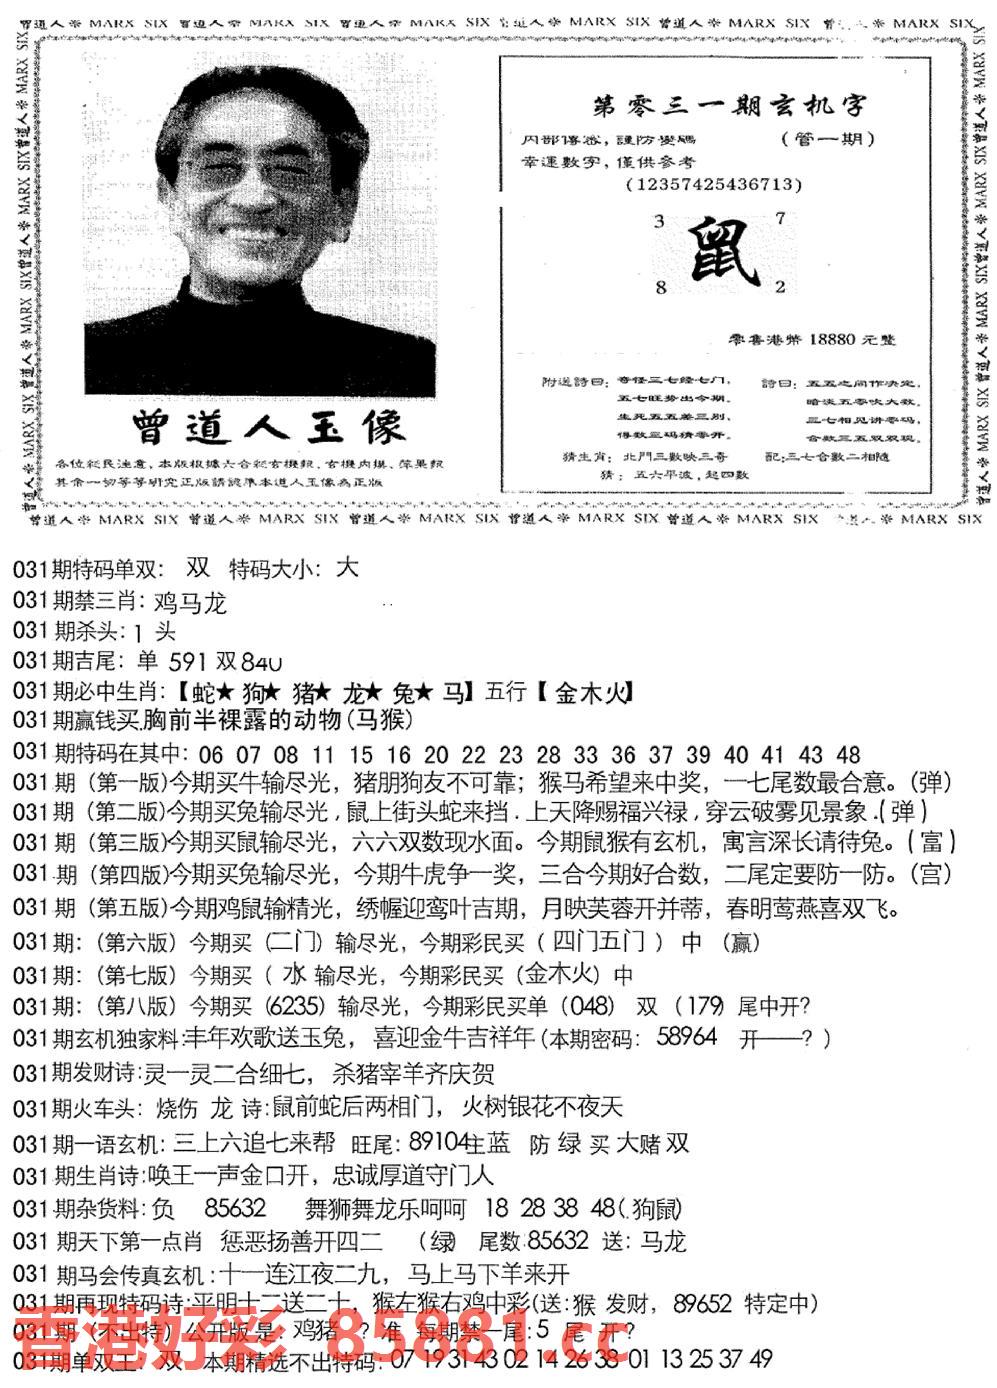 曾道人※ MARX SIX 曾道人※ MARX SIX 曾道人※ MARX SIX 曾道人※ MARX SIX 曾道人※ MARX SIX 曾道人※ MARX SIX
第零三一期玄机字
内部傳密，謹防變碼 （管一期）
幸運數字，僅供參考
(12357425436713)
3 7
鼠
8 2
零售港幣 18880 元整
附送詩曰：奇怪三七经七门，
五七旺势出今期。
生死五五差三别，
得数三码猜零开。
詩曰：五五之间作决定，
暗淡五零吹大数，
三七相见讲零码，
合数三五双双现。
猜生肖：北門三數映三奇 配:三七合數二相隨
猜：五六平波，起四數
曾道人玉像
各位彩民注意，本版根據六合彩玄機報、玄機內槼、苹果报
其余一切等等研究正版請認準本道人玉像為正版
曾道人※ MARX SIX 曾道人※ MARX SIX 曾道人※ MARX SIX 曾道人※ MARX SIX 曾道人※ MARX SIX 曾道人※ MARX SIX
031期特码单双： 双 特码大小： 大
031期禁三肖：鸡马龙
031期杀头：1 头
031期吉尾：单 591 双840
031期必中生肖：【蛇★ 狗★ 猪★ 龙★ 兔★ 马】五行【金木火】
031期赢钱买.胸前半裸露的动物(马猴)
031期特码在其中：06 07 08 11 15 16 20 22 23 28 33 36 37 39 40 41 43 48
031期（第一版)今期买牛输尽光，猪朋狗友不可靠；猴马希望来中奖，一七尾数最合意。（弹）
031期（第二版)今期买兔输尽光,鼠上街头蛇来挡.上天降赐福兴禄,穿云破雾见景象.(弹)
031期（第三版)今期买鼠输尽光，六六双数现水面。今期鼠猴有玄机，寓言深长请待兔。(富)
031.期（第四版)今期买兔输尽光，今期牛虎争一奖，三合今期好合数，二尾定要防一防。（宫）
031期（第五版)今期鸡鼠输精光，绣幄迎鸾叶吉期，月映芙蓉开并蒂，春明莺燕喜双飞。
031期:（第六版）今期买（二门）输尽光，今期彩民买（四门五门）中 （赢）
031期:（第七版）今期买（水 输尽光，今期彩民买（金木火）中
031期:（第八版）今期买（6235）输尽光，今期彩民买单（048） 双 （179）尾中开?
031期玄机独家料:丰年欢歌送玉兔，喜迎金牛吉祥年(本期密码：58964 开——？)
031期发财诗:灵一灵二合细七，杀猪宰羊齐庆贺
031期火车头： 烧伤 龙 诗:鼠前蛇后两相门， 火树银花不夜天
031期一语玄机：三上六追七来帮 旺尾：89104主蓝 防 绿 买 大赌 双
031期生肖诗:唤王一声金口开，忠诚厚道守门人
031期杂货料:负 85632 舞狮舞龙乐呵呵 18 28 38 48(.狗鼠)
031 期天下第一点肖 惩恶扬善开四二 （绿） 尾数:85632 送: 马龙
031 期马会传真玄机:十一连江夜二九，马上马下羊来开
031期再现特码诗:平明十二送二十，猴左猴右鸡中彩(送:猴 发财，89652 特定中)
031期（不出特）公开版是：鸡猪 ？准 每期禁一尾:5 尾 开？
031期单双王：双 本期精选不出特码：07 19 31 43 02 14 26 38 01 13 25 37 49
香港好彩 85881.cc